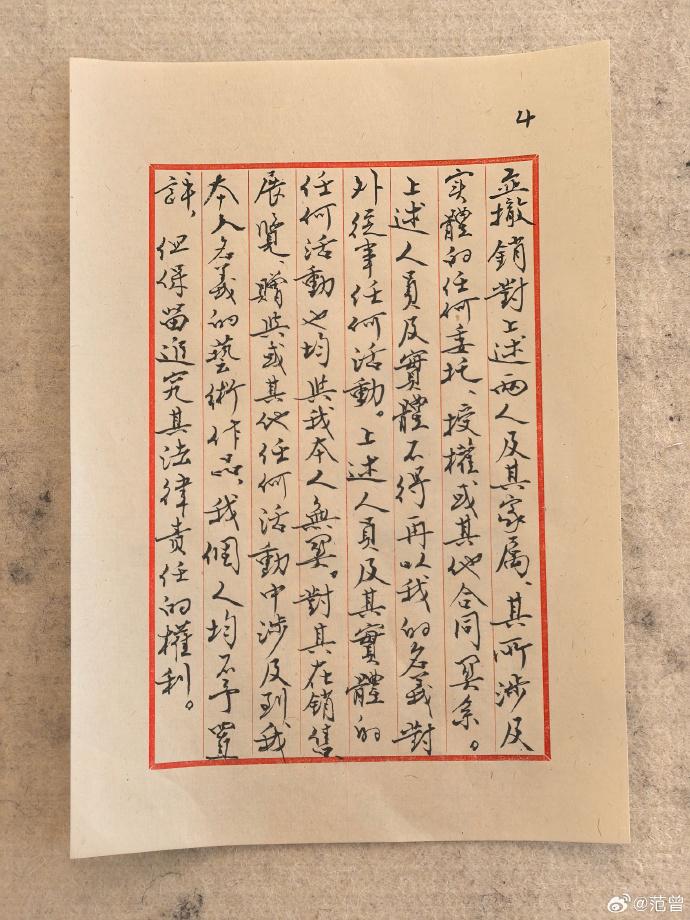 4
並撤銷對上述兩人及其家属、其所涉及
实體的任何委托、授權或其他合同関系。
上述人員及實體不得再以我的名義對
外從事任何活動。上述人員及其實體的
任何活動也均與我本人無関。對其在銷售
展覽、贈與或其他任何活動中涉及到我
本人名義的藝術作品、我個人均不予置
評，但保留追究其法律責任的權利。
@范曾